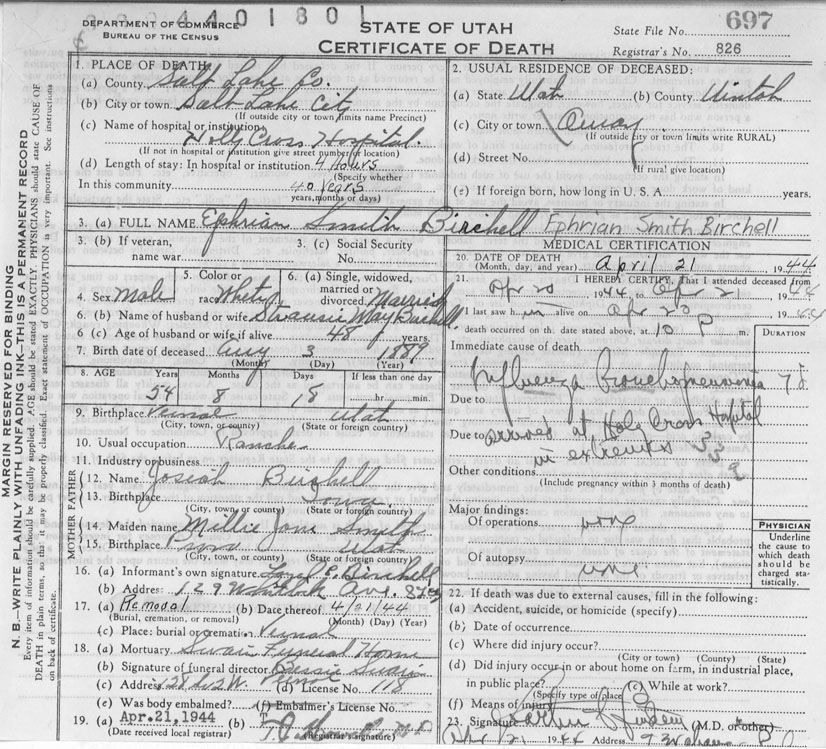 2 4 4 0 1 8 0 1
DEPARTMENT OF COMMERCE
BUREAU OF THE CENSUS
STATE OF UTAH
CERTIFICATE OF DEATH
State File No. 697
Registrar's No. 826
MARGIN RESERVED FOR BINDING
N. B.—WRITE PLAINLY WITH UNFADING INK—THIS IS A PERMANENT RECORD
Every item of information should be carefully supplied. AGE should be stated EXACTLY. PHYSICIANS should state CAUSE OF
DEATH in plain terms, so that it may be properly classified. Exact statement of OCCUPATION is very important. See instructions
on back of certificate.
1. PLACE OF DEATH
(a) County Salt Lake Co.
(b) City or town Salt Lake City
(If outside city or town limits name Precinct)
(c) Name of hospital or institution
Holy Cross Hospital.
(If not in hospital or institution give street number or location)
(d) Length of stay: In hospital or institution 4 Hours
(Specify whether
In this community 40 Years
years, months or days)
2. USUAL RESIDENCE OF DECEASED:
(a) State Utah (b) County Uintah
(c) City or town Ouray
(If outside city or town limits write RURAL)
(d) Street No.
(If rural give location)
(e) If foreign born, how long in U. S. A. years.
3. (a) FULL NAME Ephrian Smith Birchell Ephrian Smith Birchell
3. (b) If veteran,
name war
3. (c) Social Security
No.
4. Sex Male
5. Color or
race White
6. (a) Single, widowed,
married or
divorced Married
6. (b) Name of husband or wife May Birchell
6. (c) Age of husband or wife if alive 48 years
7. Birth date of deceased Aug 3 1889
(Month) (Day) (Year)
8. AGE Years Months Days If less than one day
54 8 18 hr. min.
9. Birthplace Vernal Utah
(City, town, or county) (State or foreign country)
10. Usual occupation Rancher
11. Industry or business
FATHER
12. Name Josiah Birchell
13. Birthplace Iowa
(City, town, or county) (State or foreign country)
MOTHER
14. Maiden name Millie Jane Smith
15. Birthplace Utah
(City, town, or county) (State or foreign country)
16. (a) Informant's own signature Birchell
(b) Address 129 Ave.
17. (a) Removal (b) Date thereof 4/21/44
(Burial, cremation, or removal) (Month) (Day) (Year)
(c) Place: burial or cremation Vernal
18. (a) Mortuary Swain Funeral Home
(b) Signature of funeral director Bessie Swain
(c) Address (d) License No. 118
(e) Was body embalmed? (f) Embalmer's License No.
19. (a) Apr. 21, 1944 (b)
(Date received local registrar) (Registrar's signature)
MEDICAL CERTIFICATION
20. DATE OF DEATH
(Month, day, and year) April 21 1944
21. I HEREBY CERTIFY, That I attended deceased from
Apr 20 1944 to Apr 21 1944
I last saw him alive on Apr 20 1944
death occurred on the date stated above, at 10 p m.
DURATION
Immediate cause of death
Influenza Bronchopneumonia
Due to
arrived at Holy Cross Hospital
Due to
in extremis
Other conditions
(Include pregnancy within 3 months of death)
Major findings:
Of operations none
Of autopsy none
PHYSICIAN
Underline
the cause to
which death
should be
charged sta-
tistically.
22. If death was due to external causes, fill in the following:
(a) Accident, suicide, or homicide (specify)
(b) Date of occurrence
(c) Where did injury occur?
(City or town) (County) (State)
(d) Did injury occur in or about home on farm, in industrial place,
in public place? (e) While at work?
(Specify type of place)
(f) Means of injury
23. Signature (M.D. or other)
Apr 21 1944 Address